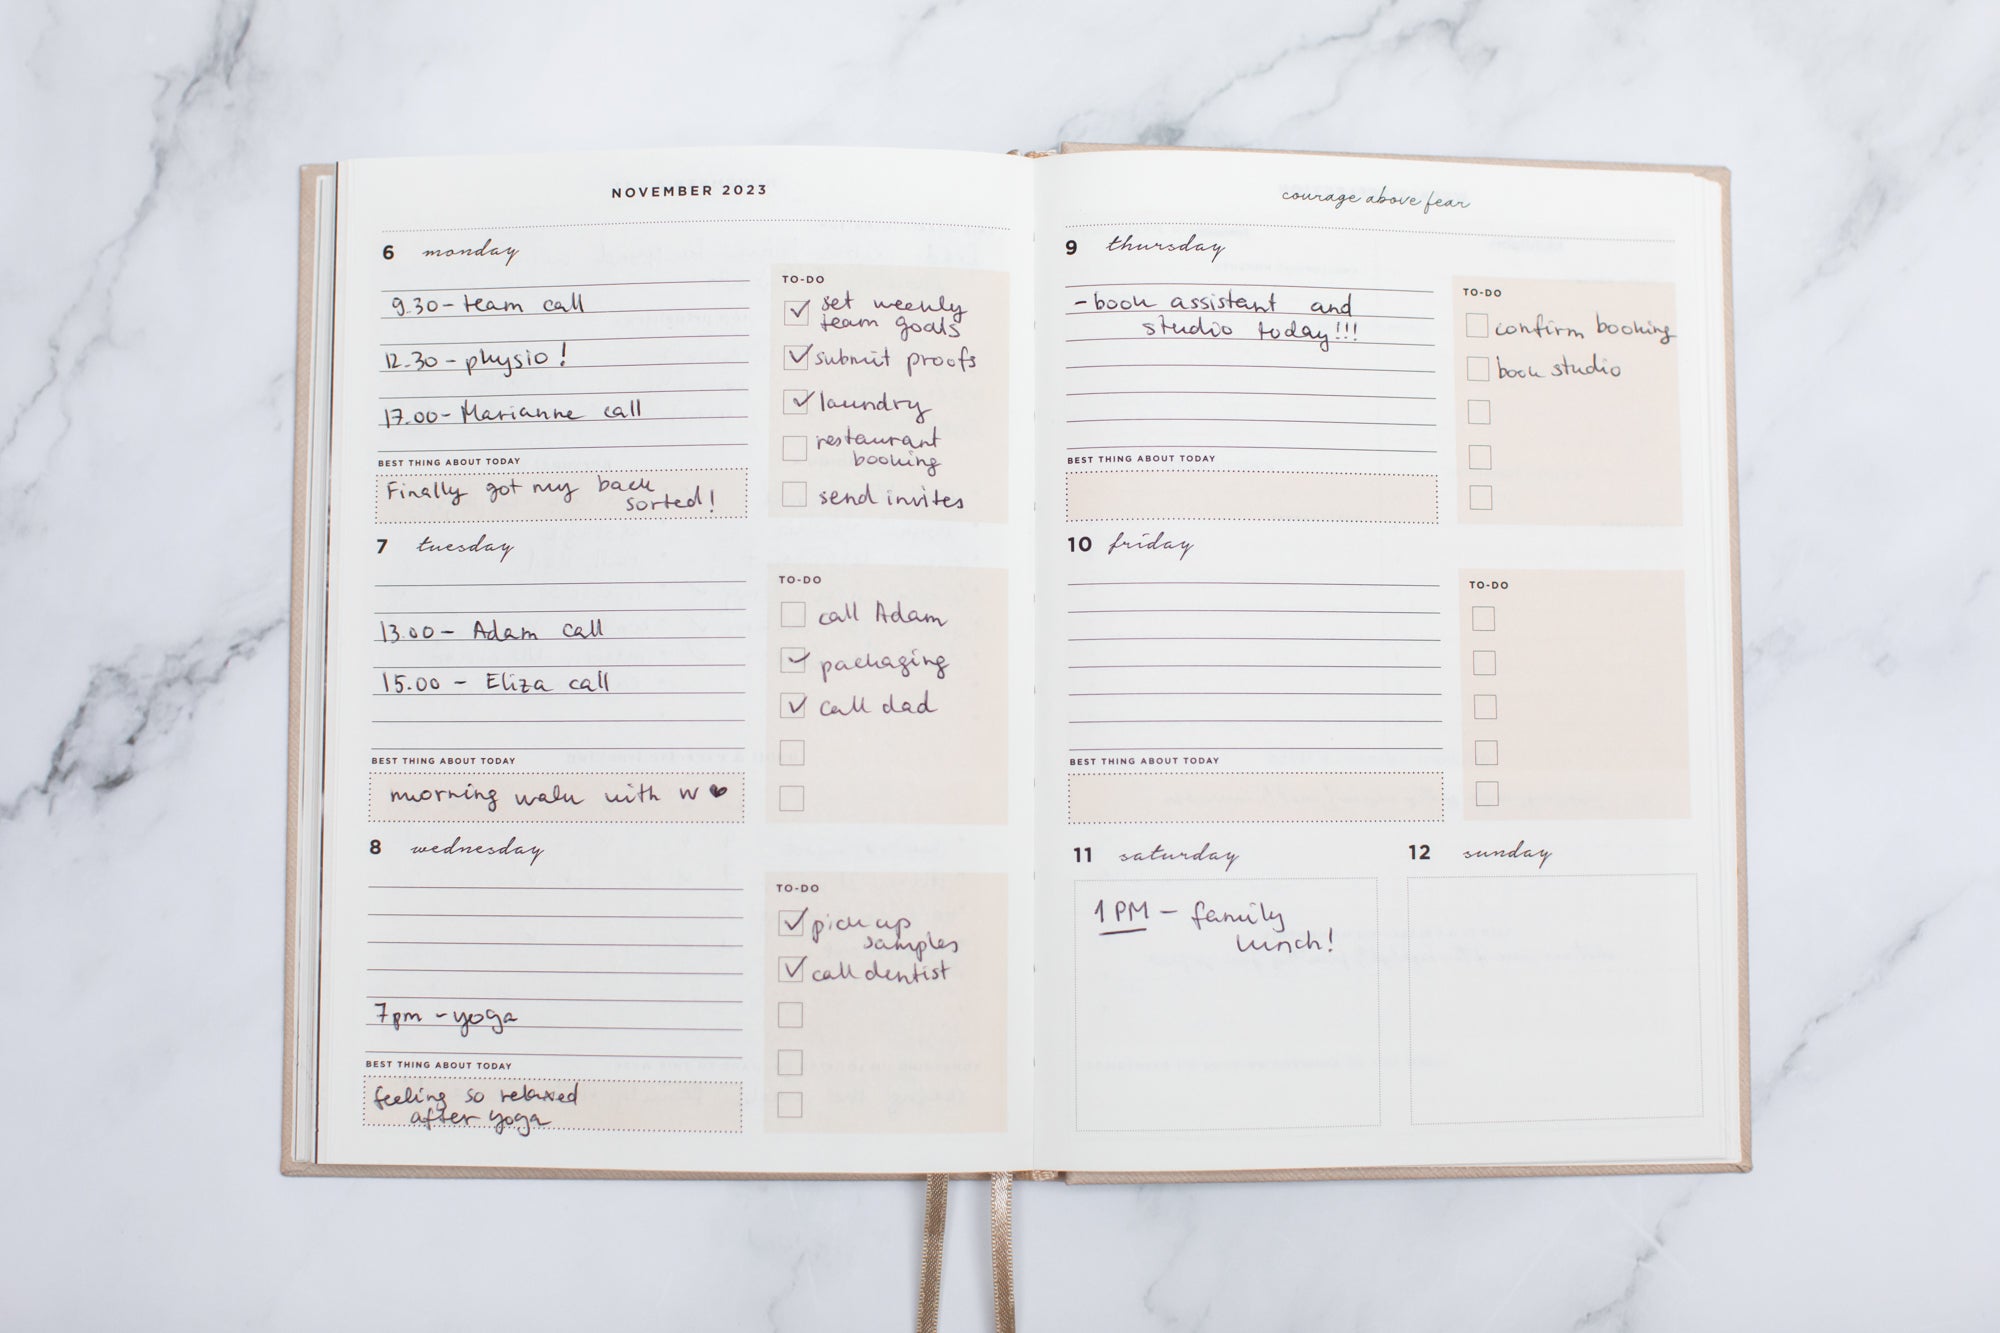 NOVEMBER 2023
6 monday
9.30 - team call
12.30 - physio!
17.00 - Marianne call
TO-DO
set weekly
team goals
submit proofs
laundry
restaurant
booking
send invites
BEST THING ABOUT TODAY
Finally got my back
sorted!
7 tuesday
13.00 - Adam call
15.00 - Eliza call
TO-DO
call Adam
packaging
call dad
BEST THING ABOUT TODAY
morning walk with W ♥
8 wednesday
7pm - yoga
TO-DO
pick up
samples
call dentist
BEST THING ABOUT TODAY
feeling so relaxed
after yoga
courage above fear
9 thursday
- book assistant and
studio today!!!
TO-DO
confirm booking
book studio
BEST THING ABOUT TODAY
10 friday
TO-DO
BEST THING ABOUT TODAY
11 saturday
1PM - family
lunch!
12 sunday